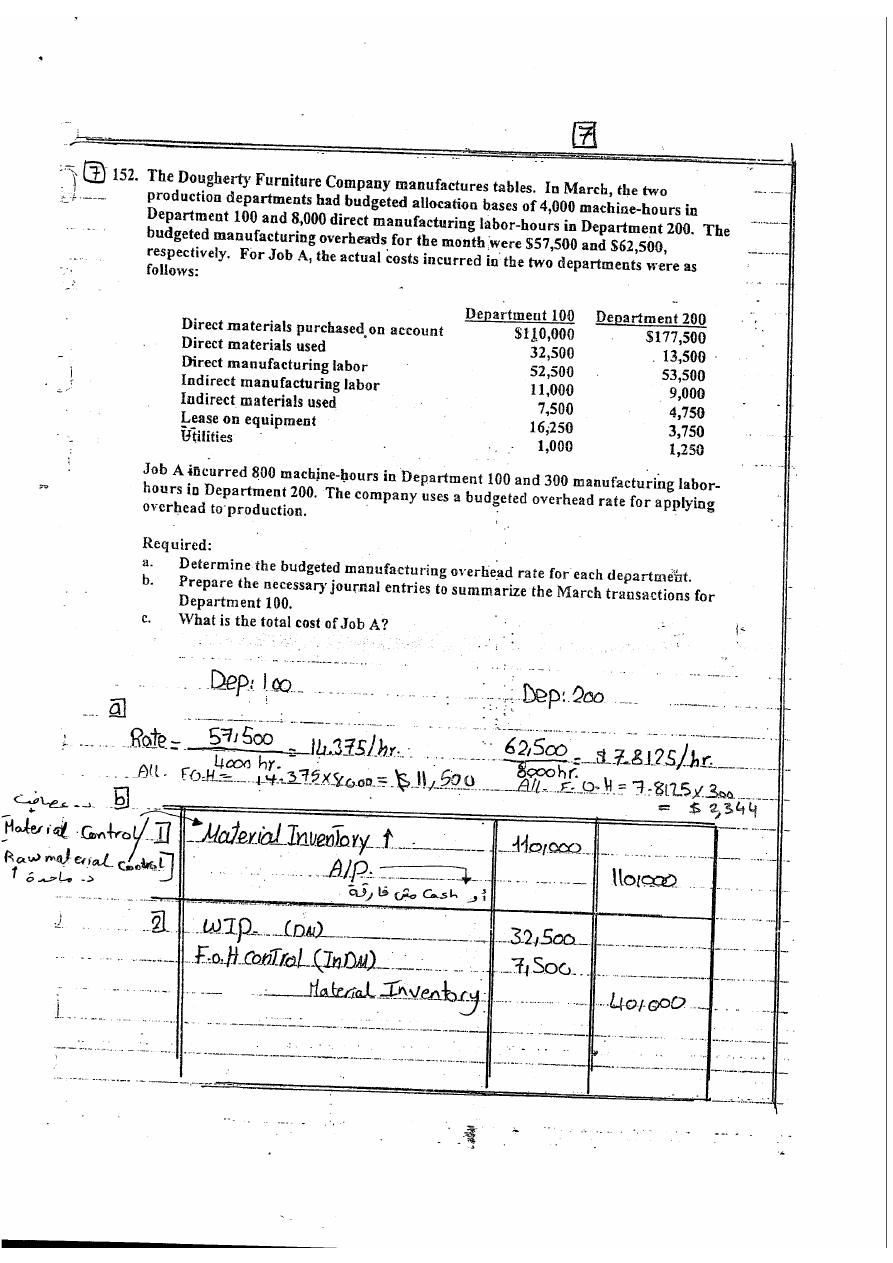 7
7 152. The Dougherty Furniture Company manufactures tables. In March, the two
production departments had budgeted allocation bases of 4,000 machine-hours in
Department 100 and 8,000 direct manufacturing labor-hours in Department 200. The
budgeted manufacturing overheads for the month were $57,500 and $62,500,
respectively. For Job A, the actual costs incurred in the two departments were as
follows:
Department 100 Department 200
Direct materials purchased on account $110,000 $177,500
Direct materials used 32,500 13,500
Direct manufacturing labor 52,500 53,500
Indirect manufacturing labor 11,000 9,000
Indirect materials used 7,500 4,750
Lease on equipment 16,250 3,750
Utilities 1,000 1,250
Job A incurred 800 machine-hours in Department 100 and 300 manufacturing labor-
hours in Department 200. The company uses a budgeted overhead rate for applying
overhead to production.
Required:
a. Determine the budgeted manufacturing overhead rate for each department.
b. Prepare the necessary journal entries to summarize the March transactions for
Department 100.
c. What is the total cost of Job A?
Dep: 100 Dep: 200
a
Rate = 57,500 = 14.375/hr. 62,500 = $7.8125/hr.
4000 hr. 8000 hr.
All. F.O.H = 14.375 x = $11,500 All. F.O.H = 7.8125 x 300
= $2,344
b
Material Control/ 1 Material Inventory ↑ 110,000
Raw material control A/P. 110,000
أو Cash مش فارقة
2 WIP (DM) 32,500
F.o.H control (InDM) 7,500
Material Inventory 40,000